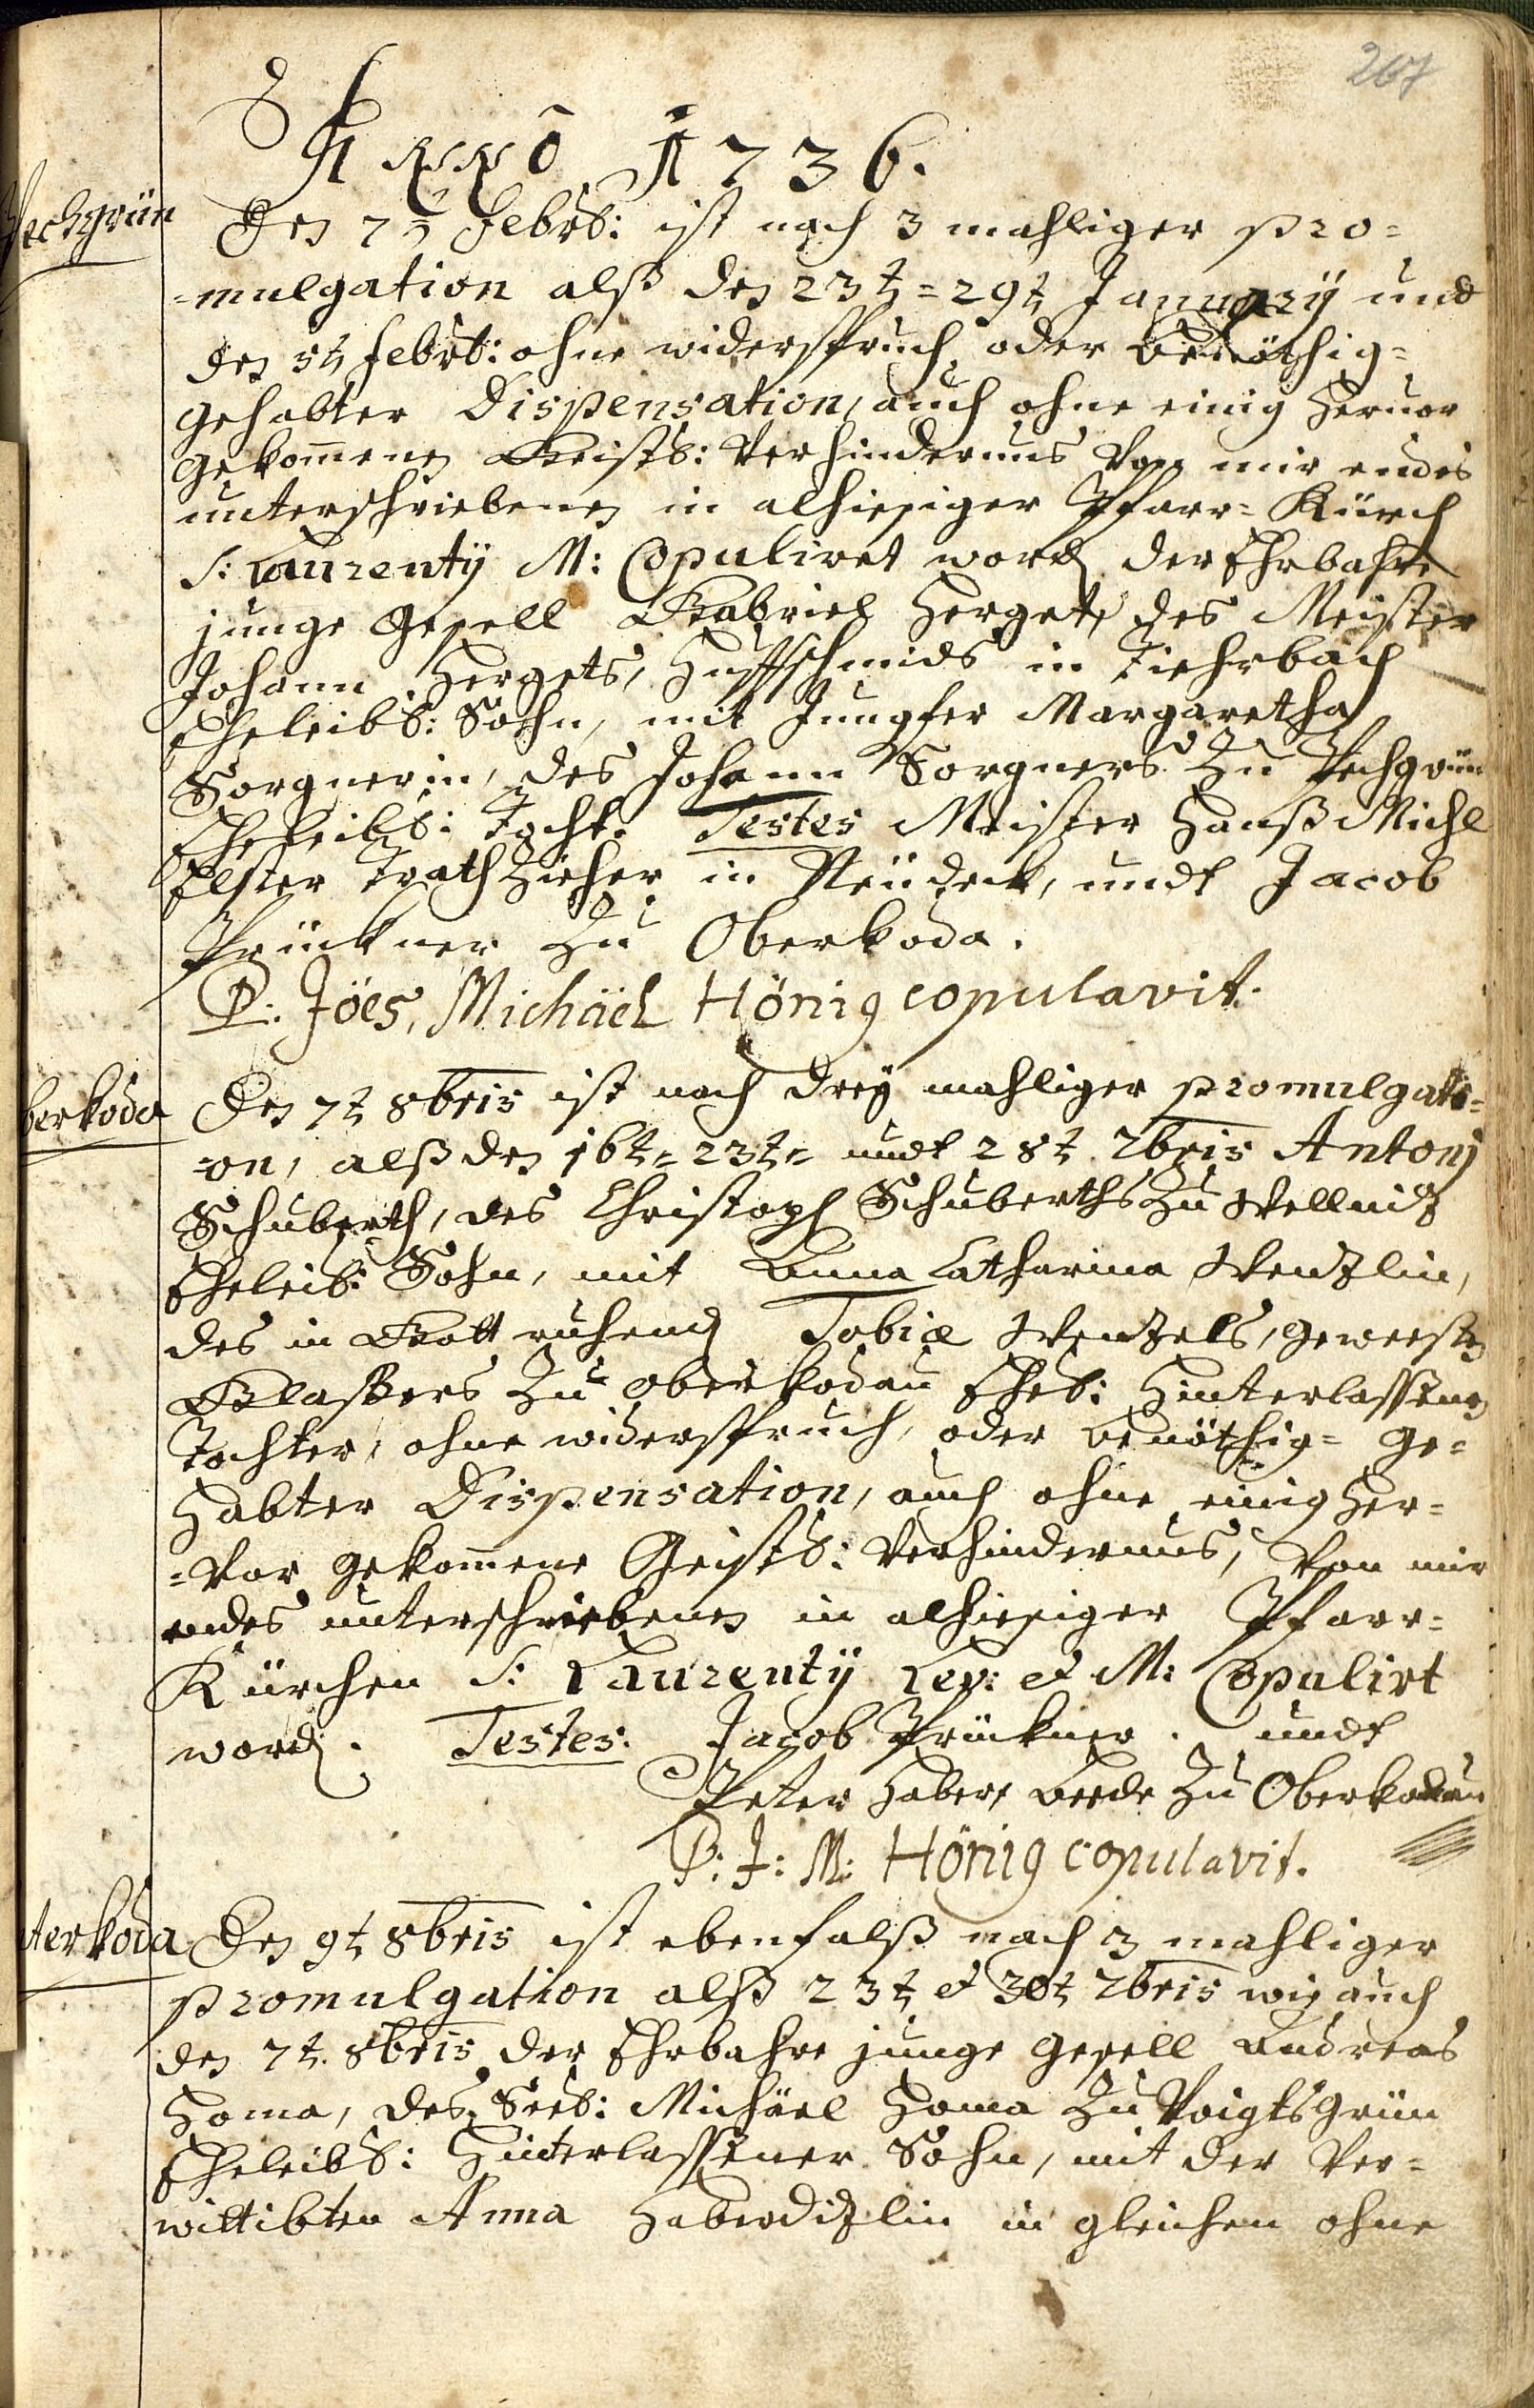 267
Anno 1736.
Pechgrün
Den 7t Febrs: ist nach 3 mahliger pro=
=mulgation alß den 23t= 29t January und
den 5t Febrs: ohne widerspruch, oder benöthig=
gehabter Dispensation, auch ohne einig hervor
gekommenen Geists: Verhindernus von mir endes
unterschriebenen in alhiesiger Pfarr= Kürch
S: Laurentÿ M: Copuliret word. der Ehrbahre
junge Gesell Gabriel Herget, des Meister
Johann Hergets, Huffschmids in Ziehrbach
Eheleibs: Sohn, mit Jungfer Margaretha
Sorgnerin, des Johann Sorgners Zu Pechgrün
Eheleibs: Tocht. Testes Meister Hanß Michl
Elster TrathZieher in Neüdeck, undt Jacob
Prückner Zu Oberkoda.
P: Jöes, Michäel Hönig copulavit.
berkoda
Den 7t 8bris ist nach dreÿ mahliger promulgati=
=on, alß den 16t= 23t= undt 28t 7bris Antonj
Schuberth, des Christoph Schuberths Zu Wellnitz
Eheleib: Sohn, mit Anna Catharina Wentzlin,
des in Gott ruhend Tobiæ Wentzels, geweesten
Glaßers Zu Oberkodau Ehes: Hinterlassenen
Tochter, ohne widerspruch, oder benöthig= ge=
habter Dispensation, auch ohne einig her=
=vor gekommene Geists: Verhindernus, von mir
endes unterschriebenen in alhiesiger Pfarr=
Kürchen S: Laurentÿ Lev: et M: Copulirt
word. Testes. Jacob Prückner. undt
Peter Haber, beede Zu Oberkodau
P: J: M: Hönig copulavit.
terkoda
Den 9t 8bris ist ebenfalß nach 3 mahliger
promulgation alß 23t et 30t 7bris wie auch
den 7t. 8bris der Ehrbahre junge Gesell Andreas
Homa, des Seel: Michäel Homa Zu Voigtsgrün
Eheleibs: Hinterlassener Sohn, mit der Ver=
wittibten Anna Haberditzlin in gleichen ohne